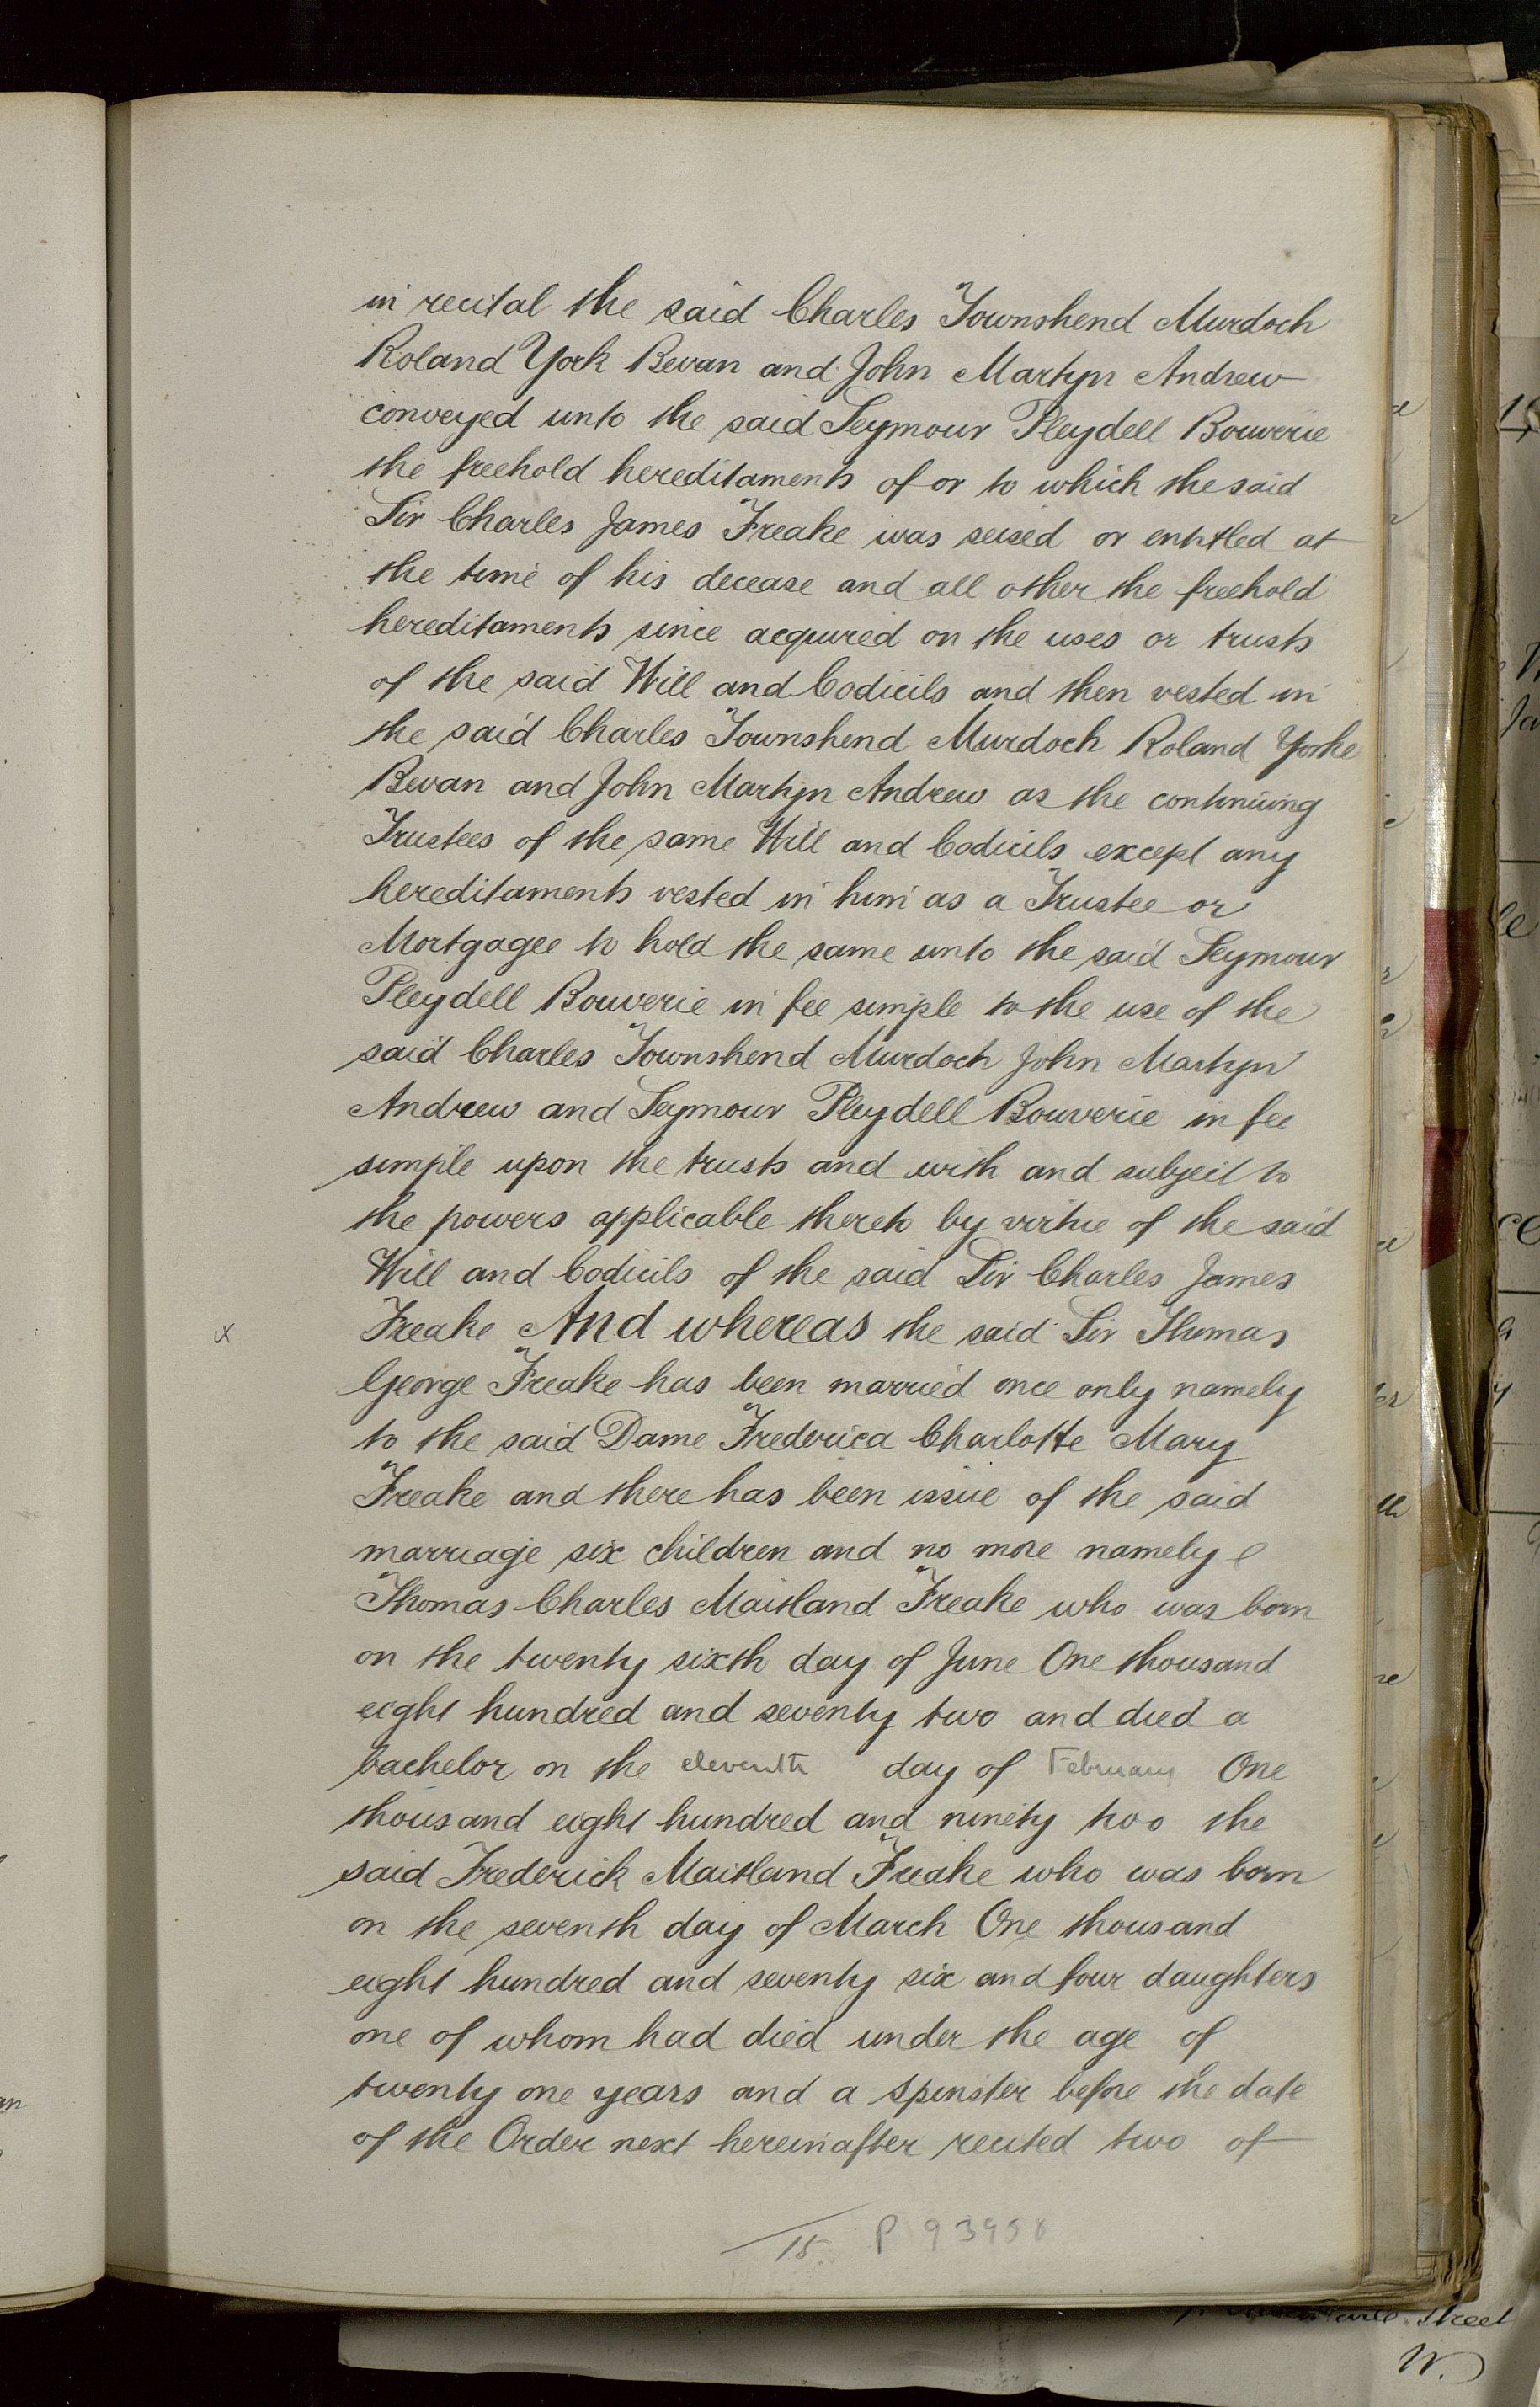 in recital the said Charles Townshend Murdoch
Roland York Bevan and John Martyn Andrew
conveyed unto the said Seymour Pleydell Bouverie
the freehold hereditaments of or to which the said
Sir Charles James Freake was seised or entitled at
the time of his decease and all other the freehold
hereditaments since acquired on the uses or trusts
of the said Will and Codicils and then vested in
the said Charles Townshend Murdoch Roland Yorke
Bevan and John Martyn Andrew as the continuing
Trustees of the same Will and Codicils except any
hereditaments vested in him as a Trustee or
Mortgagee to hold the same unto the said Seymour
Pleydell Bouverie in fee simple to the use of the
said Charles Townshend Murdoch John Martyn
Andrew and Seymour Pleydell Bouverie in fee
simple upon the trusts and with and subject to
the powers applicable thereto by virtue of the said
Will and Codicils of the said Sir Charles James
x Freake And whereas the said Sir Thomas
George Freake has been married once only namely
to the said Dame Frederica Charlotte Mary
Freake and there has been issue of the said
marriage six children and no more namely
Thomas Charles Maitland Freake who was born
on the twenty sixth day of June One thousand
eight hundred and seventy two and died a
bachelor on the eleventh day of February One
thousand eight hundred and ninety two the
said Frederick Maitland Freake who was born
on the seventh day of March One thousand
eight hundred and seventy six and four daughters
one of whom had died under the age of
twenty one years and a spinster before the date
of the Order next hereinafter recited two of
15. P 93958
Street
W.